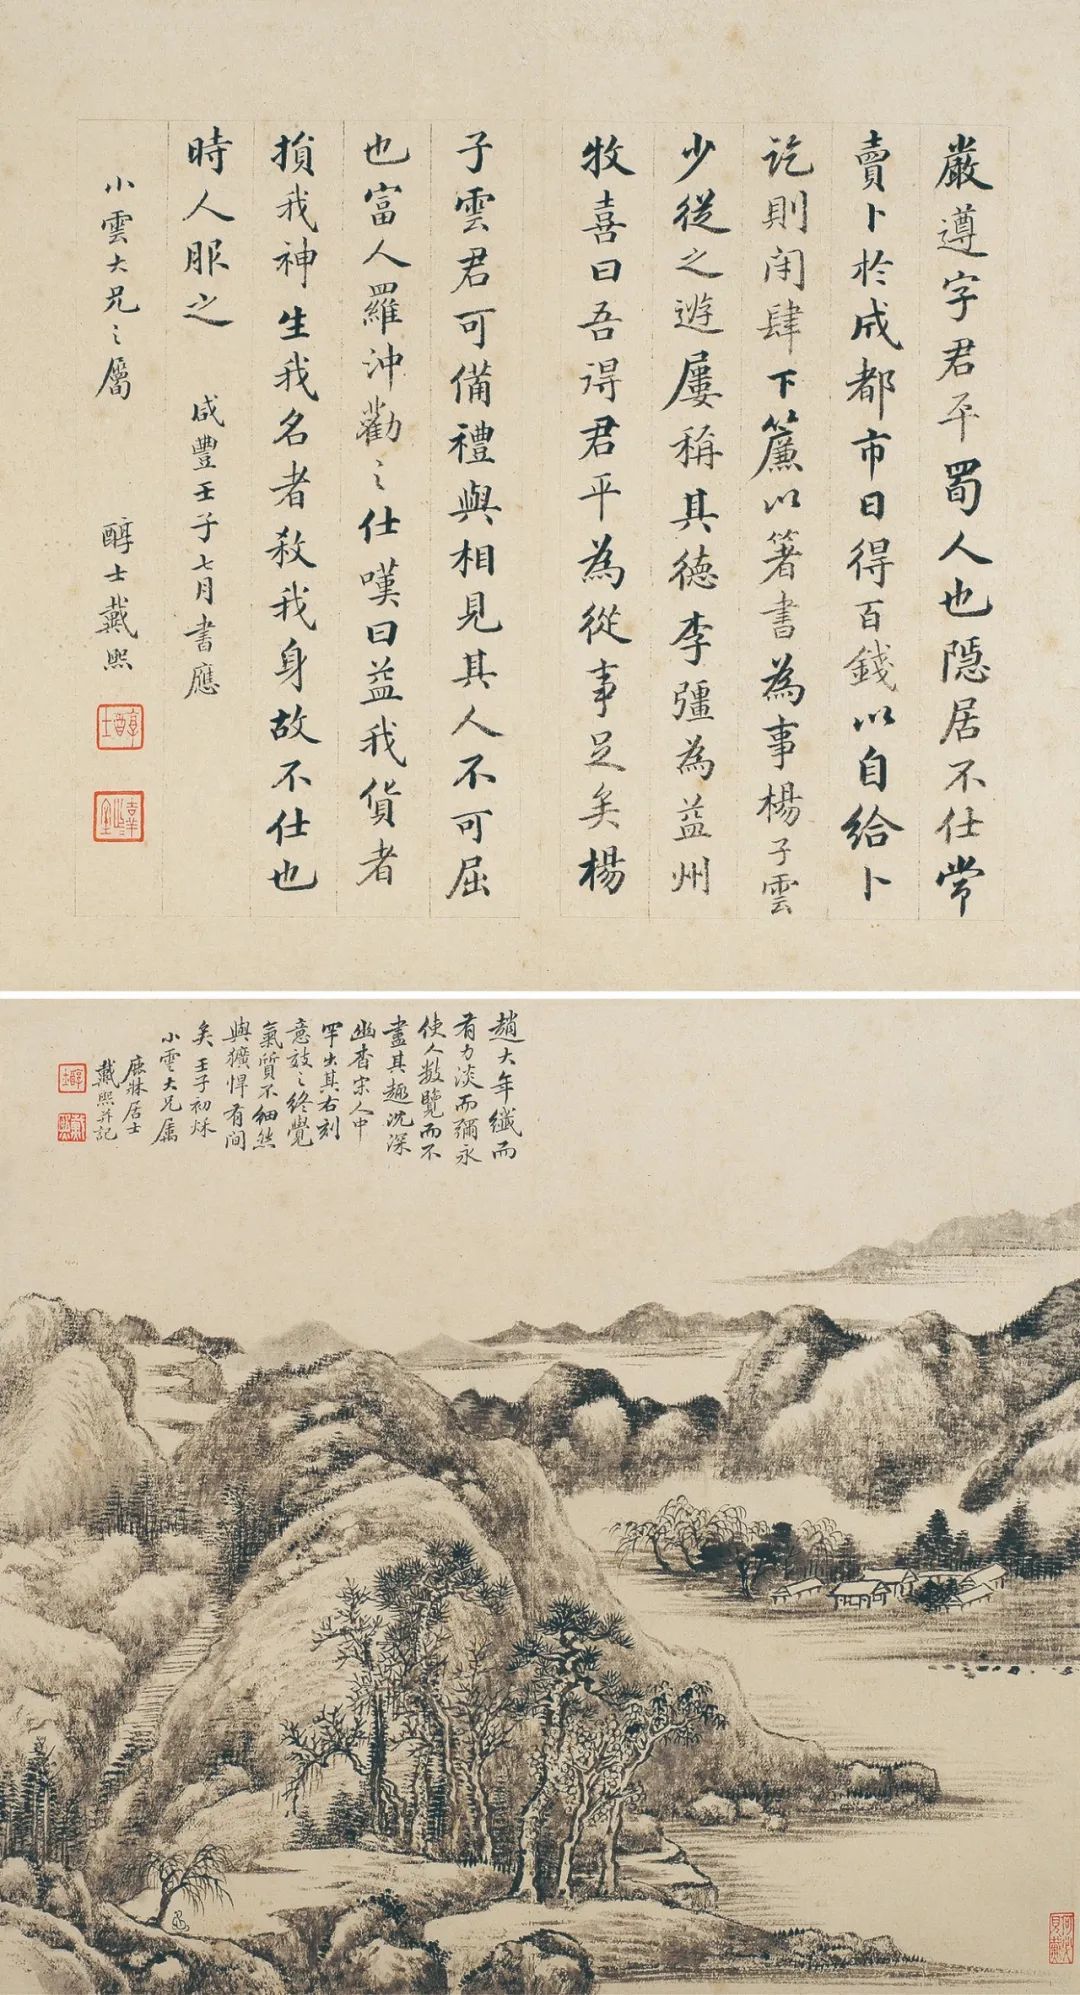 嚴遵字君平蜀人也隱居不仕常
賣卜於成都市日得百錢以自給卜
訖則闭肆下簾以箸書為事楊子雲
少從之遊屢稱其德李彊為益州
牧喜曰吾得君平為從事足矣楊
子雲君可備禮與相見其人不可屈
也富人羅沖勸之仕嘆曰益我貨者
損我神生我名者殺我身故不仕也
時人服之 咸豐壬子七月書應
小雲大兄之屬 醇士戴熙
趙大年纖而
有力淡而彌永
使人數覽而不
盡其趣沈深
幽杳宋人中
罕出其右刻
意效之終覺
氣質不細然
與獷悍有間
矣壬子初秌
小雲大兄属
鹿牀居士
戴熙并記
醇士